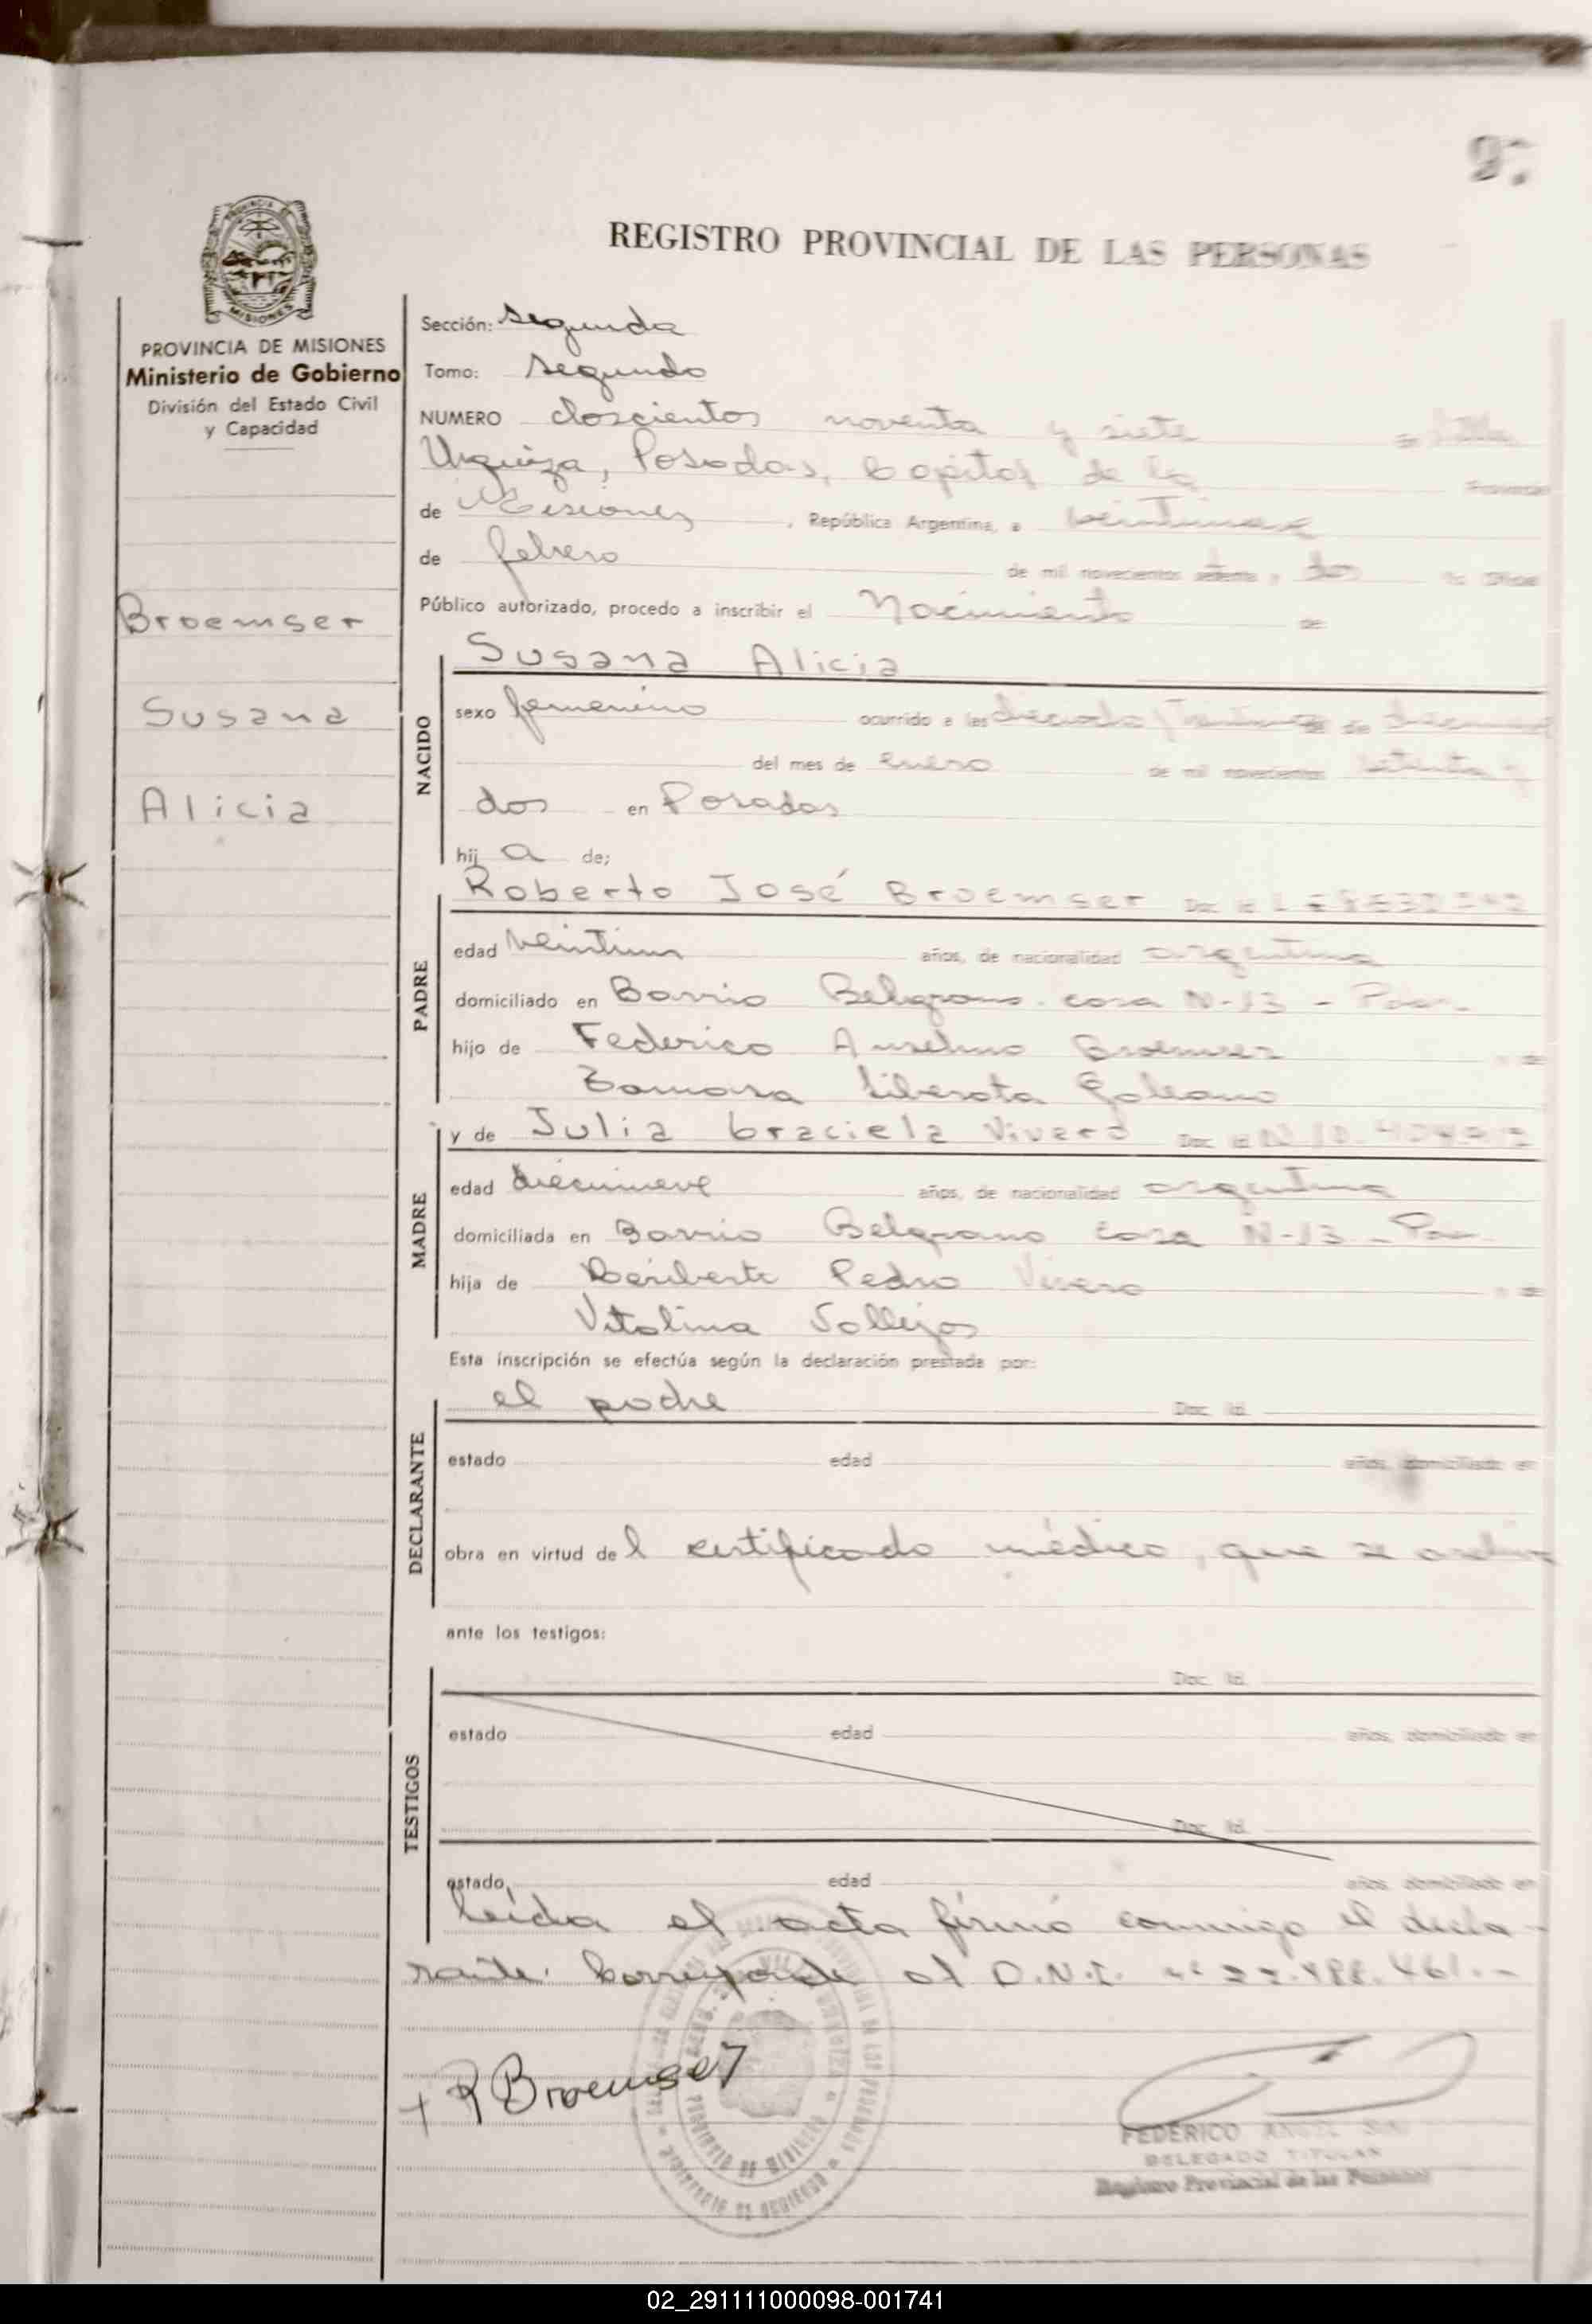 REGISTRO PROVINCIAL DE LAS PERSONAS
PROVINCIA DE MISIONES
Ministerio de Gobierno
División del Estado Civil
y Capacidad
Broemser
Susana
Alicia
Sección: Segunda
Tomo: Segundo
NUMERO doscientos noventa y siete en Villa
Urquiza, Posadas, Capital de la Provincia
de Misiones, República Argentina, a
de febrero de mil novecientos setenta y dos Yo Oficial
Público autorizado, procedo a inscribir el Nacimiento de
NACIDO
Susana Alicia
sexo femenino ocurrido a las de
del mes de Enero de mil novecientos setenta y
dos en Posadas
hij a de;
PADRE
Roberto José Broemser Doc. Id. L E
edad veintiun años, de nacionalidad argentina
domiciliado en Barrio Belgrano. casa N-13 -
hijo de Federico Anselmo Broemser y de
Liberata Galeano
MADRE
y de Julia Graciela Vivero Doc. Id.
edad diecinueve años, de nacionalidad argentina
domiciliada en Barrio Belgrano casa N-13 -
hija de Heriberto Pedro Vivero y de
Vitalina Vallejos
Esta inscripción se efectúa según la declaración prestada por:
DECLARANTE
el padre Doc. Id.
estado edad años, domiciliado en
obra en virtud del certificado médico, que se archiva
ante los testigos:
TESTIGOS
Doc. Id.
estado edad años, domiciliado en
Doc. Id.
estado edad años, domiciliado en
Leída el acta firmó conmigo el decla-
rante. Corresponde al D.N.I. nº
R Broemser
FEDERICO ANGEL
DELEGADO TITULAR
Registro Provincial de las Personas
02_291111000098-001741